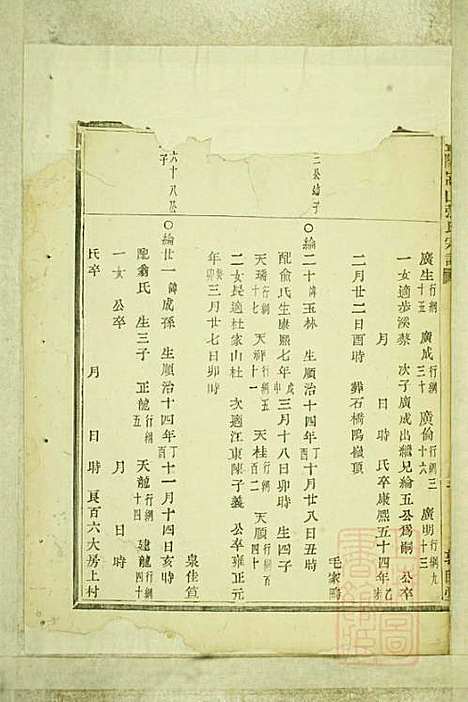 廣生行綱十五 廣成行綱三十 廣倫行綱三十六 廣明行綱九十三
一女適步溪蔡 次子廣成出繼兄綸五公爲嗣 公卒
月 日 時 氏卒康熙五十四年乙未
二月廿二日酉時 葬石橋鴫嶺頂
毛家鴫
三公幼子
○綸二十諱玉林 生順治十四年丁酉十月廿八日丑時
配俞氏生康熙七年戊申三月十八日卯時 生四子
天璘行綱十七 天祥行綱五 天桂行綱百二 天順行綱四十
二女長適杜家山杜 次適江東陳子義 公卒雍正元
年癸卯三月廿七日卯時
枲佳笪
六十八公
子
○綸廿一諱成孫 生順治十四年丁酉十一月十四日亥時
配翁氏 生三子 正龍行綱五 天龍行綱十四 建龍行綱四十
一女 公卒 月 日 時
氏卒 月 日 時 長百六大房上村